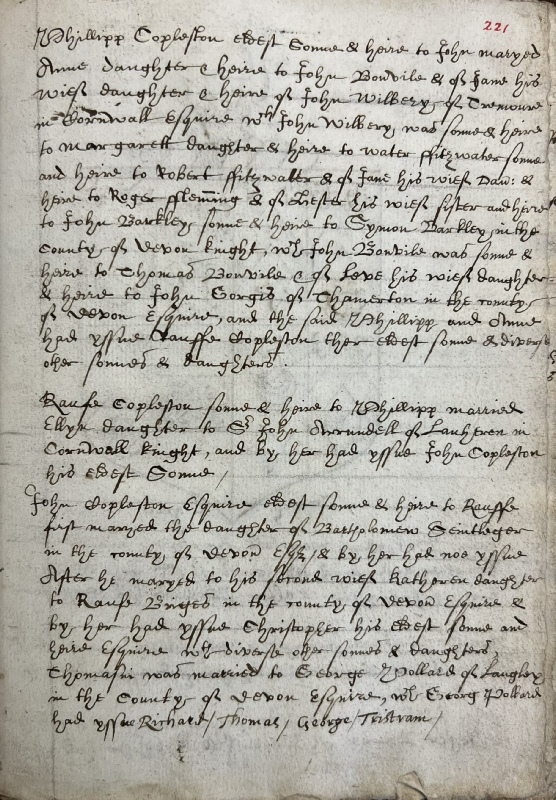 221
Phillipp Copleston eldest Sonne & heire to John maryed
Anne daughter & heire to John Bonvile & of Jane his
wief daughter & heire of John Wilbery of Tremoure
in Cornwall Esquire wch John Wilbery was sonne & heire
to Margarett daughter & heire to water ffitzwater sonne
and heire to Robert ffitzwalter & of Jane his wief Dau: &
heire to Roger fflemīng & of his wief sister and heire
to John Barkley sonne & heire to Symon Barkley in the
County of devon knight, wch John Bonvile was sonne &
heire to Thomas Bonvile & of Leve his wief daughter
& heire to John Gorgis of Thamerton in the county
of devon Esquire, and the said Phillipp and Anne
had yssue Rauffe Copleston ther eldest sonne & divers
other sonnes & daughters.
Raufe Copleston sonne & heire to Phillipp married
Ellyn daughter to Sr John Arrundell of Lanheren in
Cornwall knight, and by her had yssue John Copleston
his eldest Sonne /
John Copleston Esquire eldest sonne & heire to Rauffe
first maryed the daughter of Bartholomew Sentleger
in the county of devon Esqr, & by her had noe yssue
After he maryed to his second wief Katheren daughter
to Raufe Bruges in the county of devon Esquire &
by her had yssue Christopher his eldest sonne and
heire Esquire wth diverse other sonnes & daughters,
Thomasin was married to George Pollard of Langley
in the County of devon Esquire, wch Georg Pollard
had yssue Richard / Thomas / George / Tristram /